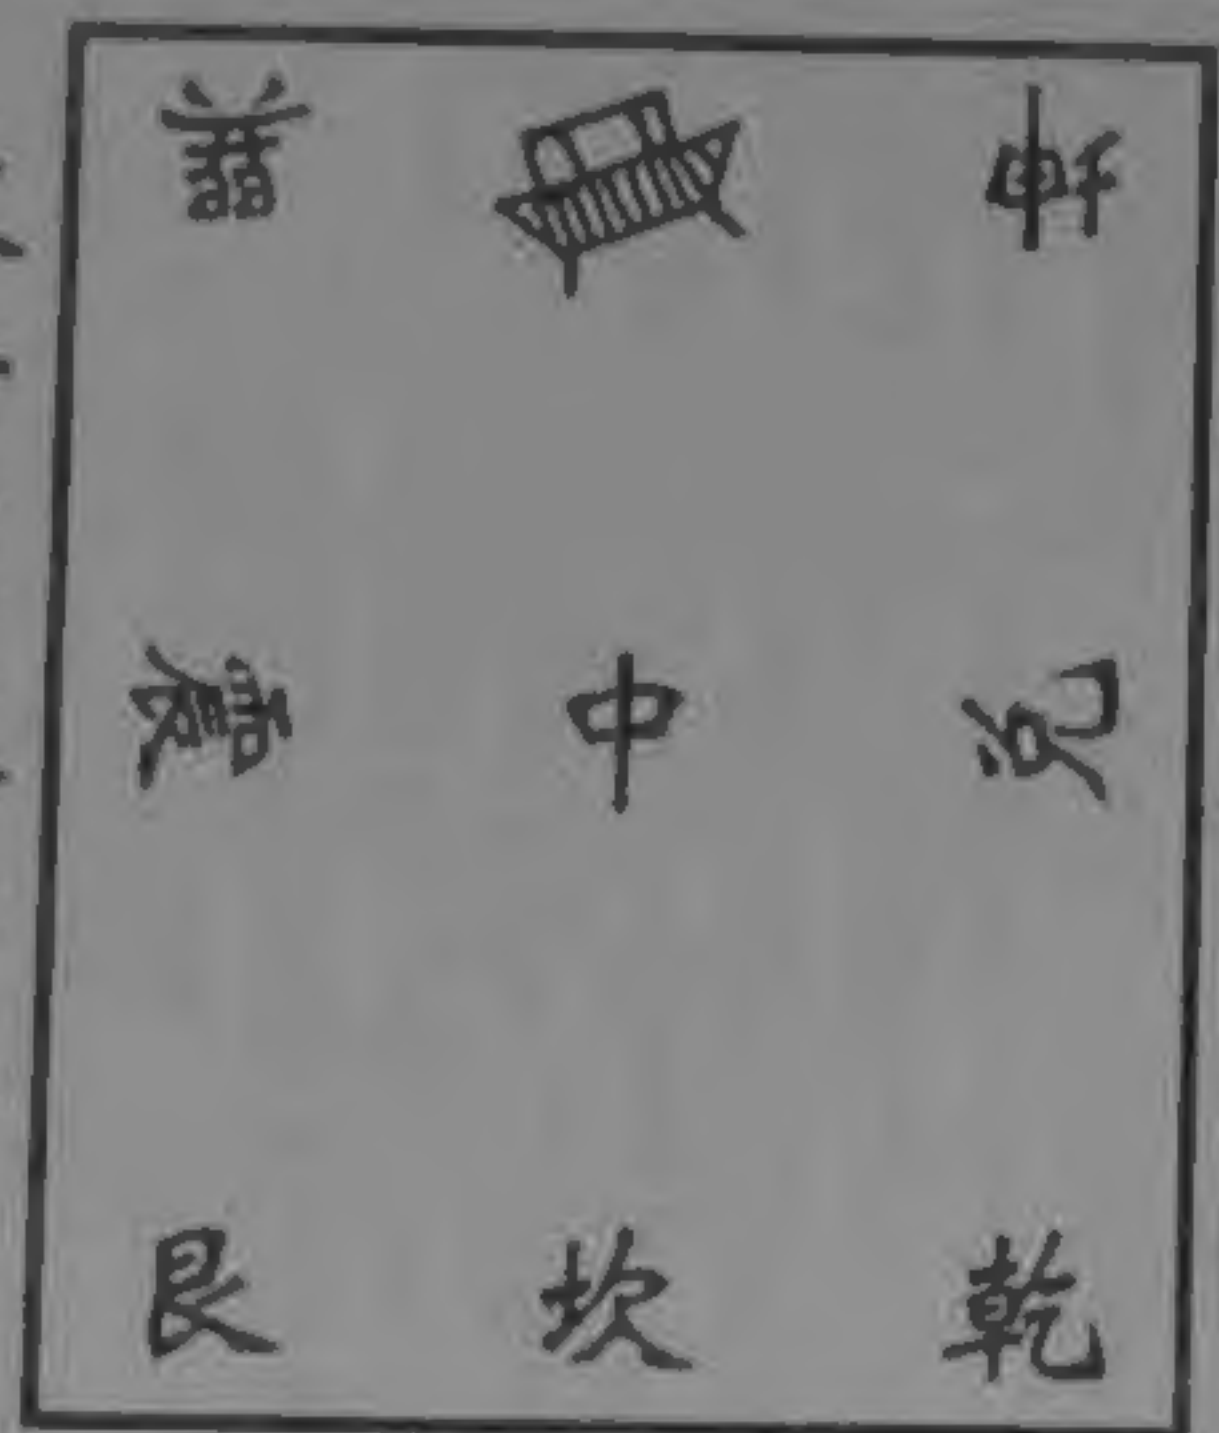 巽 坤
震 中 兌
艮 坎 乾